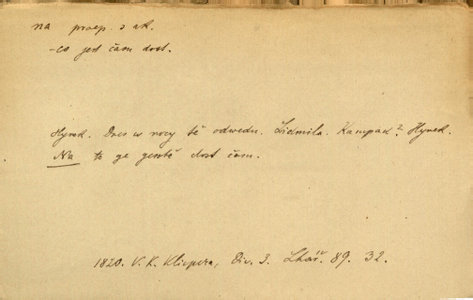 na praep. s ak.
-co jest času dost.
Hynek. Dnes w nocy tě odwedu. Lidmila. Kampak? Hynek.
Na to ge gesstě dost času.
1820. V. K. Klicpera, Div. 3. Lhář. 89. 32.